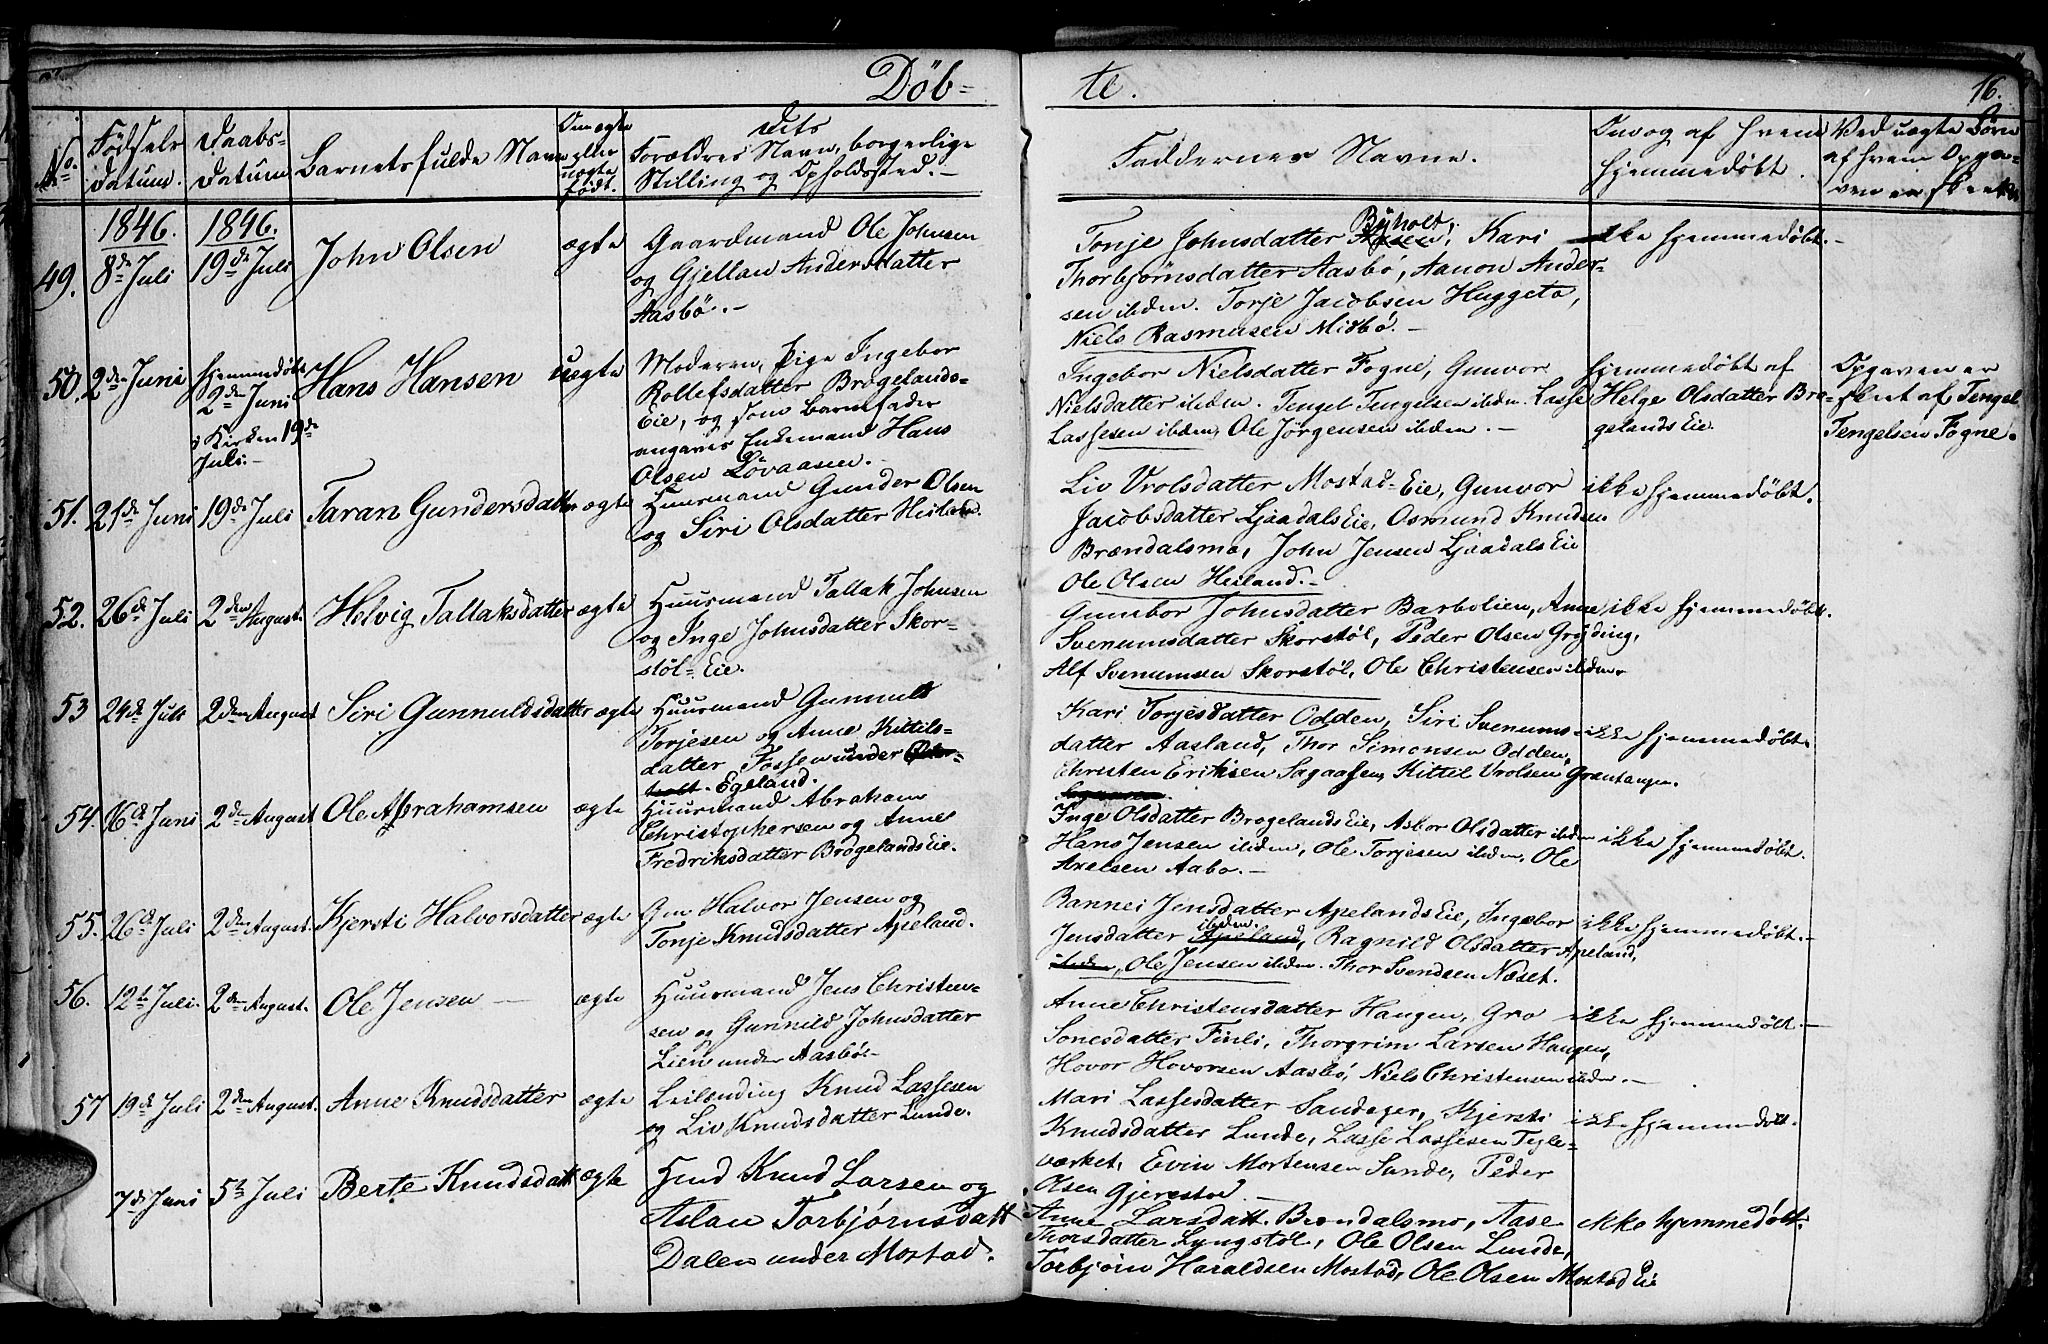 Døb-
te.
16.
No.
Fødsels
datum.
Daabs-
datum
Barnets fulde Navn
Om ægte
eller
uægte
født.
dets
Forældres Navn, borgerlige
Stilling og Opholdssted.-
Faddernes Navne.
Om og af hvem
hjemmedøbt.
Ved uægte Børn
af hvem Opga-
ven er skeet
1846.
1846.
49.
8de Juli
19de Juli
John Olsen
ægte
Gaardmand Ole Johnsen
og Gjellau Andersdatter
Aasbö.-
Tonje Johnsdatter Byholt, Kari
Thorbjörnsdatter Aasbö, Aanon Ander-
sen ibiden. Torje Jacobsen Huggeto,
Niels Rasmusen Midbö.-
ikke hjemmedøbt.-
50.
2den Juni
hjemmedöbt
2de Juni
i Kirken 19de
Juli.-
Hans Hansen
uægte
Moderen, Pige Ingebor
Rollefsdatter Brøgelands-
Eie, og som Barnefader
angaves Enkemand Hans
Olsen Løvaasen.-
Ingebor Nielsdatter Fogne, Gunvor
Nielsdatter ibiden. Tengel Tengelsen ibiden. Lasse
Lassesen ibiden, Ole Jörgensen ibiden.-
hjemmedøbt af
Helge Olsdatter Brø-
gelands Eie.
Opgaven er
skeet af Tengel
Tengelsen Fogne.
51.
21de Juni
19de Juli
Taran Gundersdatter
ægte
Huusmand Gunder Olsen
og Siri Olsdatter Heiland.
Liv Vrolsdatter Mostad-Eie, Gunvor
Jacobsdatter Ljaadals Eie, Osmund Knudsen
Brændalsmo, John Jensen Ljaadals Eie
Ole Olsen Heiland.-
ikke hjemmedøbt.
52.
26de Juli
2den August.
Helvig Tallaksdatter
ægte
Huusmand Tallak Johnsen
og Inge Johnsdatter Skor-
støl-Eie.
Gunbor Johnsdatter Barbolien, Anne
Svenumsdatter Skorstöl, Peder Olsen Gryding,
Alf Svenumsen Skorstöl, Ole Christensen ibiden.
ikke hjemmedøbt.
53
24de Juli
2den August
Siri Gunnuldsdatter
ægte
Huusmand Gunnuld
Torjesen og Anne Kittils-
datter Fossen under
Egeland.
Kari Torjesdatter Odden, Siri Svenums-
datter Aasland, Thor Simonsen Odden,
Christen Eriksen Sagaasen, Kittel Vrolsen Grøntangen.
ikke hjemmedøbt.
54.
16de Juni
2den August
Ole Abrahamsen
ægte
Huusmand Abraham
Christophersen og Anne
Fredriksdatter Brøgelands Eie.
Inge Olsdatter Brøgelands Eie, Asbor Olsdatter ibiden
Hans Jensen ibiden, Ole Torjesen ibiden, Ole
Axelsen Aabo.-
ikke hjemmedøbt.
55.
26de Juli
2den August.
Kjersti Halvorsdatter
ægte
Gm. Halvor Jensen og
Tonje Knudsdatter Apeland.
Bannei Jensdatter Apelands Eie, Ingebor
Jensdatter ibiden. Apeland, Ragnild Olsdatter Apeland,
ibiden, Ole Jensen ibiden. Thor Svendsen Næset.
ikke hjemmedøbt.-
56.
12te Juli.
2den August.
Ole Jensen -
ægte
Huusmand Jens Christen-
sen og Gunnild Johnsdatter
Lien under Aasbö.-
Anne Christensdatter Haugen, Gro
Sonesdatter Finli, Thorgrim Larsen Haugen,
Hovor Hovorsen Aasbö, Niels Christensen ibiden.-
ikke hjemmedøbt.-
57
19de Juli
2den August.
Anne Knudsdatter
ægte
Leilænding Knud Lassesen
og Liv Knudsdatter Lunde.
Mari Lassesdatter Sandager, Kjersti
Knudsdatter Lunde, Lasse Lassesen Tegle-
værket, Evin Mortensen Lunde, Peder
Olsen Gjerestad.-
ikke hjemmedøbt.
7de Juni
5te Juli
Berte Knudsdatt
ægte
Hmd Knud Larsen og
Aslau Torbjørnsdatt
Dalen under Mostad.
Anne Larsdatt. Brændalsmo, Aase
Thorsdatter Lyngstöl, Ole Olsen Lunde,
Torbjörn Haraldsen Mostad, Ole Olsen Mostad Eie
ikke hjemmedøbt.